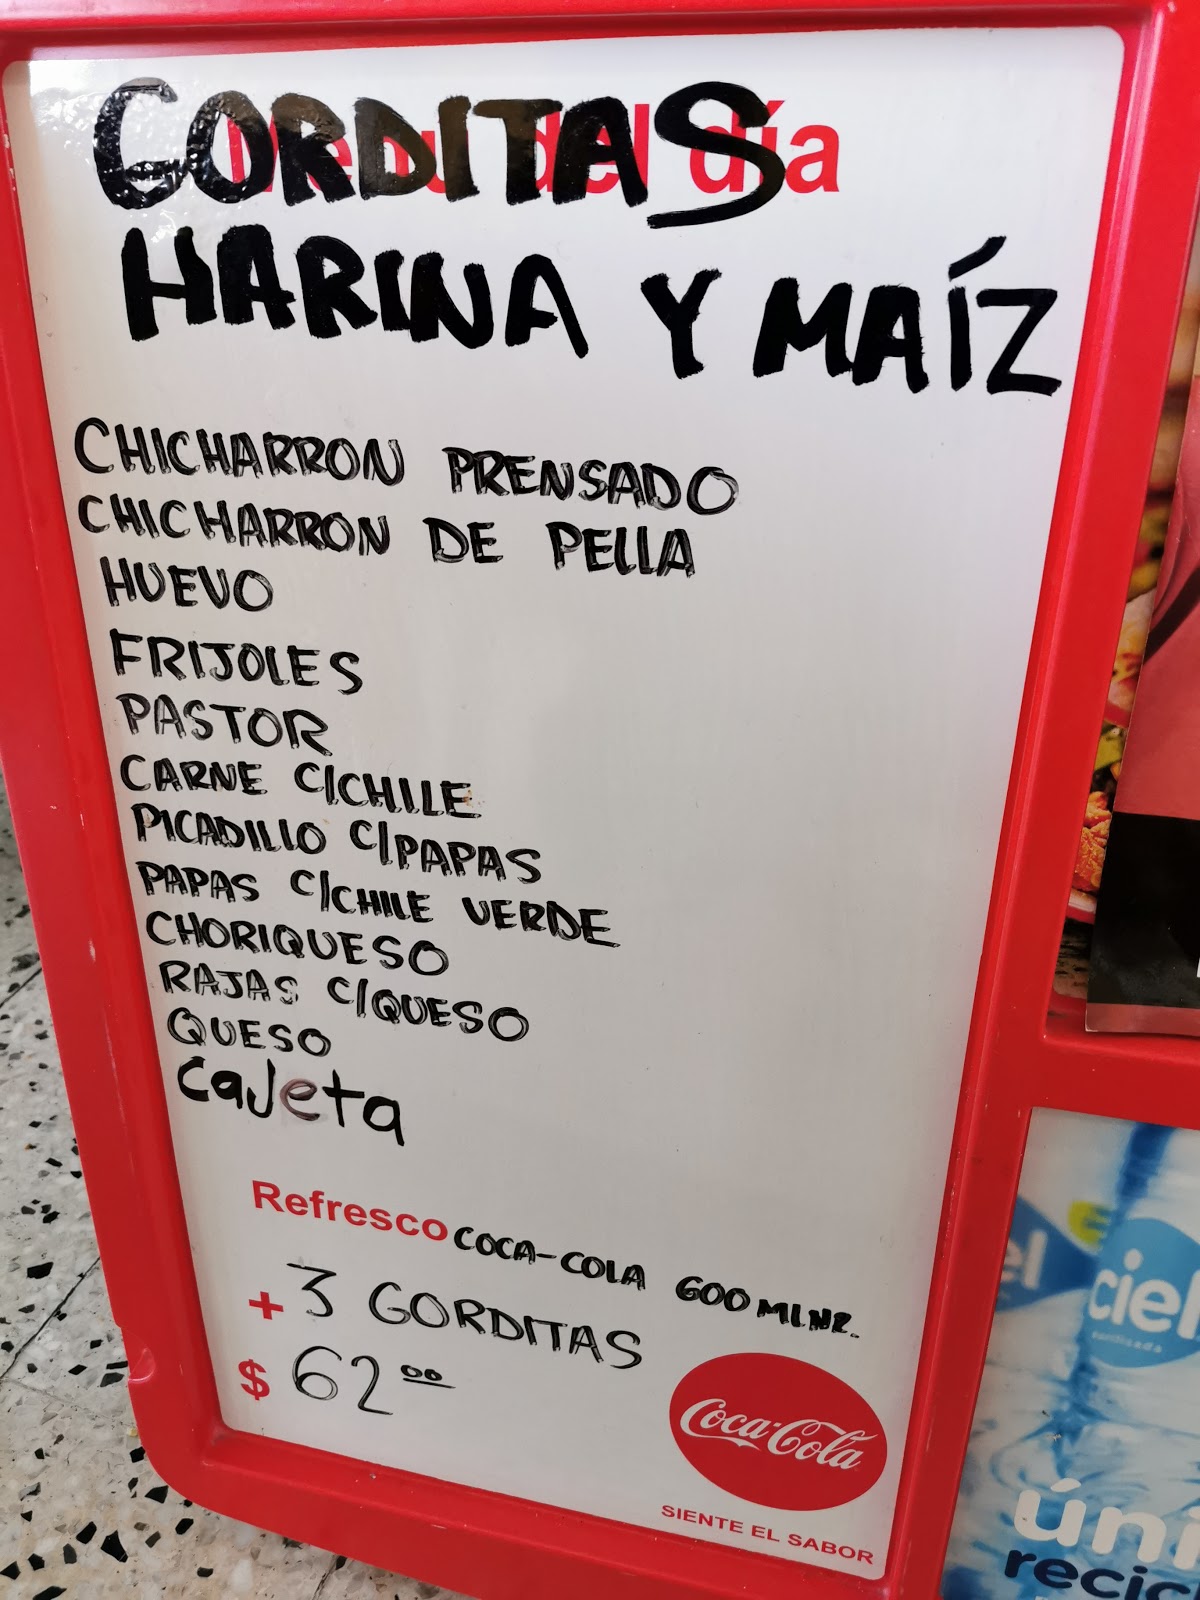 Menú del día
GORDITAS
HARINA Y MAÍZ
CHICHARRON PRENSADO
CHICHARRON DE PELLA
HUEVO
FRIJOLES
PASTOR
CARNE C/CHILE
PICADILLO C/PAPAS
PAPAS C/CHILE VERDE
CHORIQUESO
RAJAS C/QUESO
QUESO
cajeta
Refresco COCA-COLA 600
+ 3 GORDITAS
$ 62.00
Coca-Cola
SIENTE EL SABOR
el
ciel
úni
recic